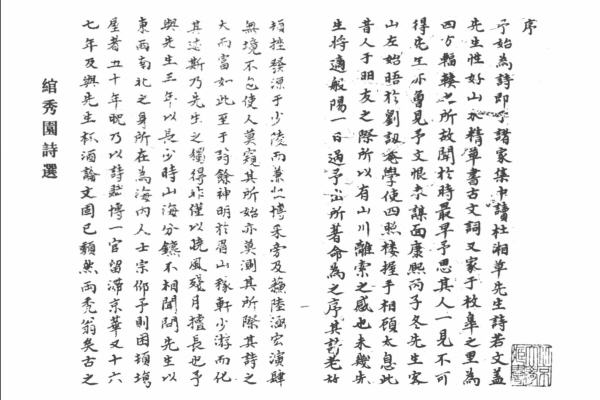 序
予始為詩即于諸家集中讀杜湘草先生詩若文蓋
先生性好山水精草書古文詞又家于枚皋之里為
四方輻輳之所故聞於時最早予思其人一見不可
得先生亦曾見予文恨未謀面康熙丙子冬先生客
山左始晤於劉訒菴學使四照樓握手相顧太息此
昔人于朋友之際所以有山川離索之感也未幾先
生將適般陽一日過予出所著命為之序其詩老
頓挫發源于少陵而兼以博采旁及蘇陸涵宏演肆
無境不包使人莫窺其所始亦莫測其所際其詩之
大而富如此至于詩餘神明於眉山稼軒少游而化
其迹斯乃先生之獨得非僅以曉風殘月擅長也予
與先生三年以長少時山海分鑣不相聞問先生以
東西南北之身所在為海內人士宗仰予則困頓塲
屋者五十年晚乃以詩賦博一官留滯京華又十六
七年及與先生杯酒論文固已頹然兩禿翁矣古之
綰秀園詩選